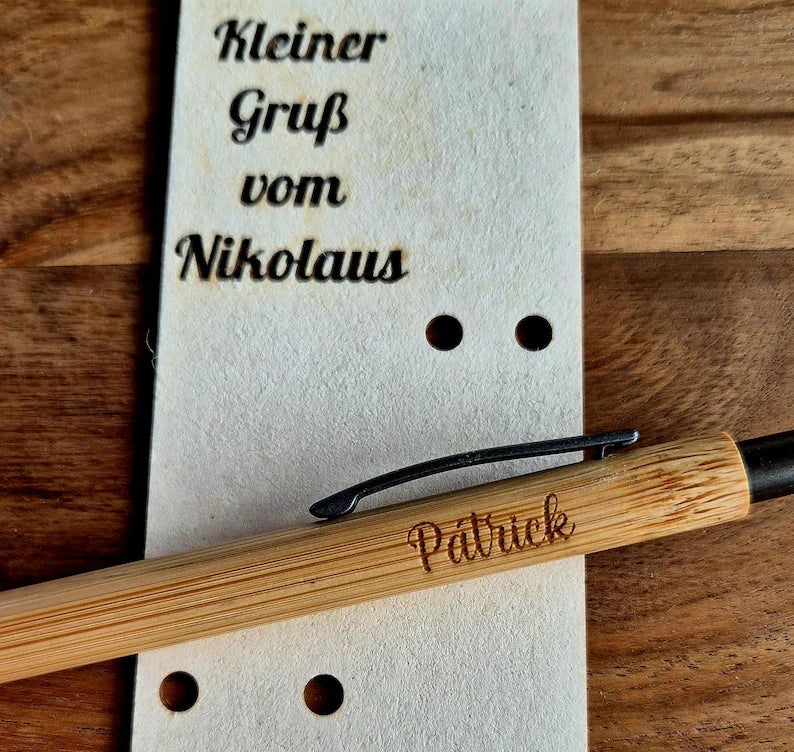 Kleiner
Gruß
vom
Nikolaus
Patrick